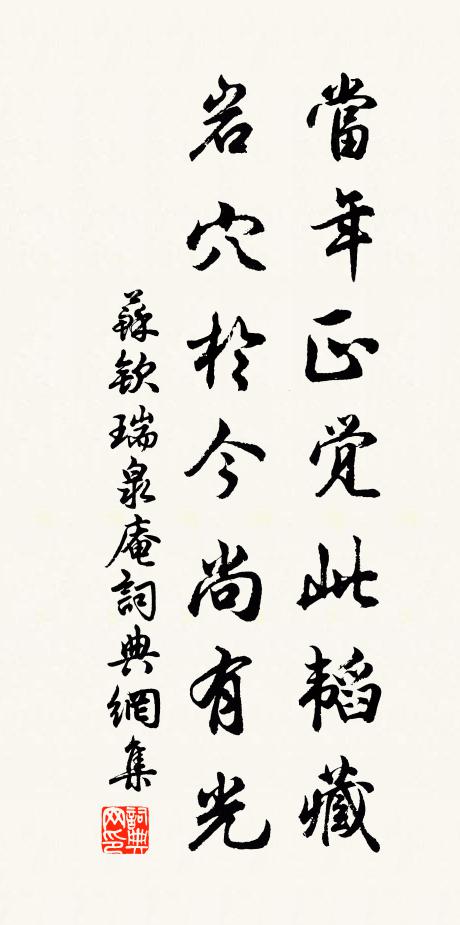 當年正觉此韬藏
岩穴於今尚有光
蘇欽瑞泉庵詞典網集
詞典
网印